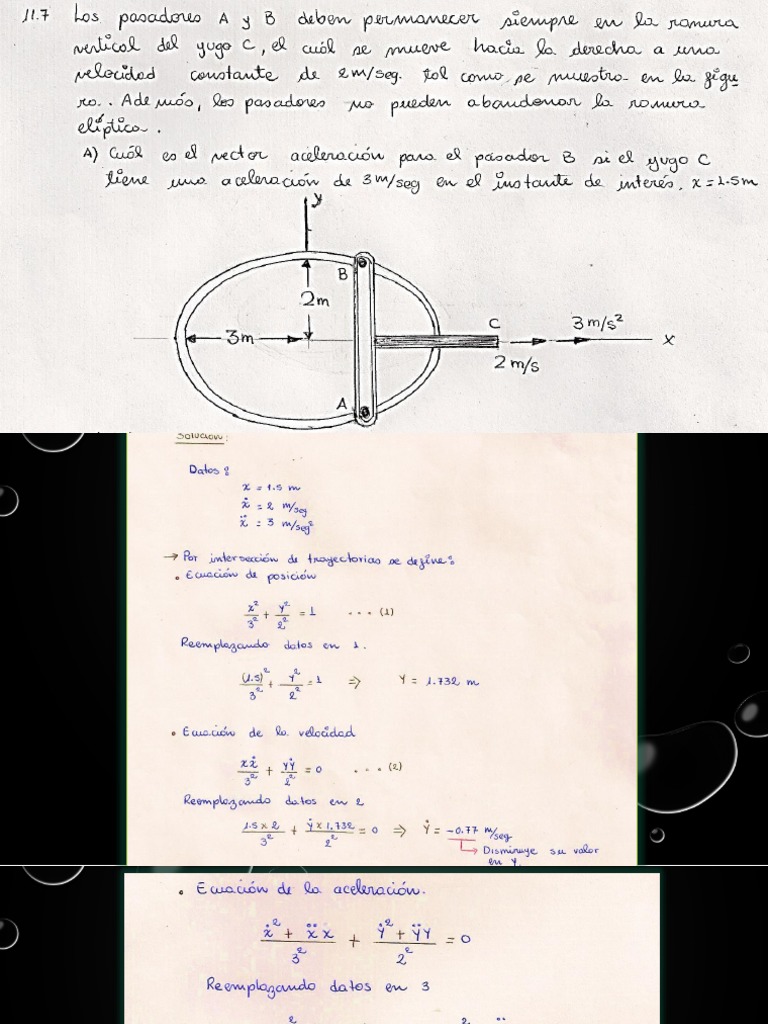 11.7 Los pasadores A y B deben permanecer siempre en la ranura
vertical del yugo C, el cuál se mueve hacia la derecha a una
velocidad constante de 2 m/seg. tal como se muestra en la figu
ra.. Además, los pasadores no pueden abandonar la ranura
elíptica.
A) Cuál es el vector aceleración para el pasador B si el yugo C
tiene una aceleración de 3 m/seg en el instante de interés, x = 1.5 m
y
B
2m
3m
C
3 m/s²
x
2 m/s
A
Solución:
Datos:
x = 1.5 m
ẋ = 2 m/seg
ẍ = 3 m/seg²
→ Por intersección de trayectorias se define:
• Ecuación de posición
x²/3² + y²/2² = 1 ... (1)
Reemplazando datos en 1.
(1.5)²/3² + y²/2² = 1 ⇒ Y = 1.732 m
• Ecuación de la velocidad
xẋ/3² + yẏ/2² = 0 ... (2)
Reemplazando datos en 2
1.5 x 2/3² + ẏ x 1.732/2² = 0 ⇒ Ẏ = -0.77 m/seg
Disminuye su valor
en Y.
• Ecuación de la aceleración.
ẋ² + ẍx/3² + ẏ² + ÿy/2² = 0
Reemplazando datos en 3